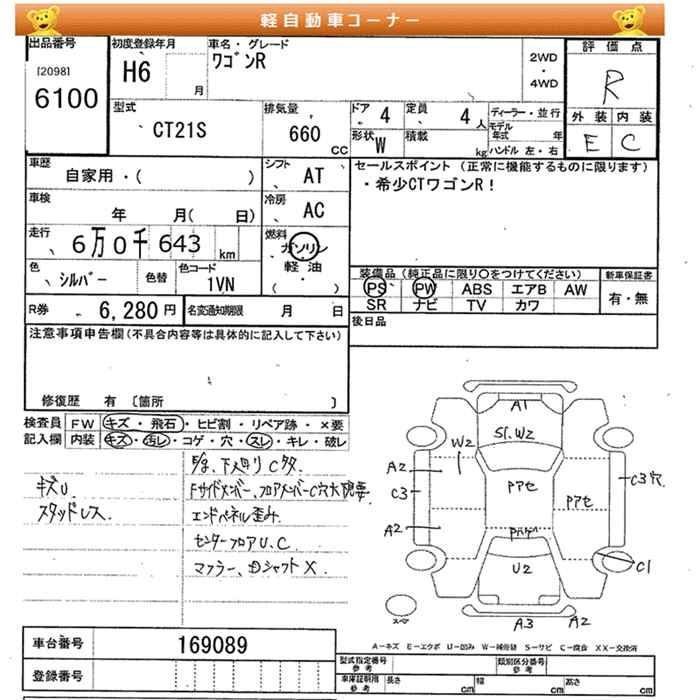 軽自動車コーナー
出品番号 初度登録年月 車名・グレード 評価点
[2098] H6 月 ワゴンR 2WD ・ 4WD R
6100
型式 CT21S 排気量 660 CC
ドア 4 定員 4 人 ディーラー・並行 外装 内装
形状 W 積載 kg モデル年式 年 E C
ハンドル 左・右
車歴 自家用・( ) シフト AT セールスポイント (正常に機能するものに限ります)
・希少CTワゴンR!
車検 年 月( 日) 冷房 AC
走行 6万0千643 km 燃料 ガソリン
軽油
・( )
色 シルバー 色替 色コード 1VN
装備品 (純正品に限り○をつけてください) 新車保証書
PS PW ABS エアB AW 有・無
SR ナビ TV カワ
R券 6,280円 名変通知期限 月 日 後日品
注意事項申告欄(不具合内容等は具体的に記入して下さい)
修復歴 有 〔箇所 〕
検査員 FW キズ・飛石・ヒビ割・リペア跡・×要
記入欄 内装 キズ・汚レ・コゲ・穴・スレ・キレ・破レ
キズU
スタッドレス
下廻りC
Fサイドメンバー、フロアメンバーC穴大
エンドパネル歪み
センターフロアU.C
マフラー、Dシャフト X
A1
S1.W2
W2
A2 Pアセ C3穴
C3 Pアセ
A2
U2 C1
スペア A3 A2
車台番号 169089
A-キズ E-エクボ U-凹み W-補修跡 S-サビ C-腐食 XX-交換済
登録番号
型式指定番号 参考 類別区分番号 参考
車庫証明用 参考 長さ cm 幅 cm 高さ cm